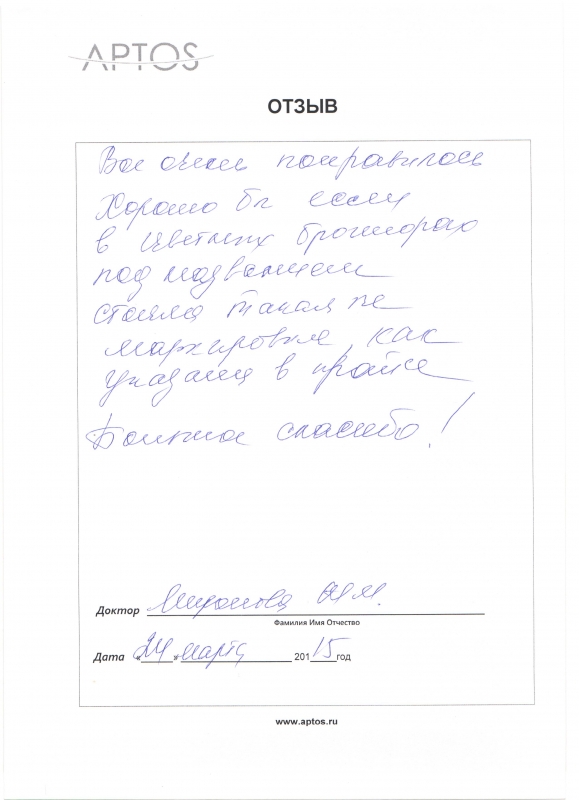 APTOS
ОТЗЫВ
Все очень понравилось
Хорошо бы если
в цветных брошюрах
под названием
стояла такая же
маркировка, как
указана в прайсе
Большое спасибо!
Доктор Миронова М.
Фамилия Имя Отчество
Дата «24» марта 2015 год
www.aptos.ru